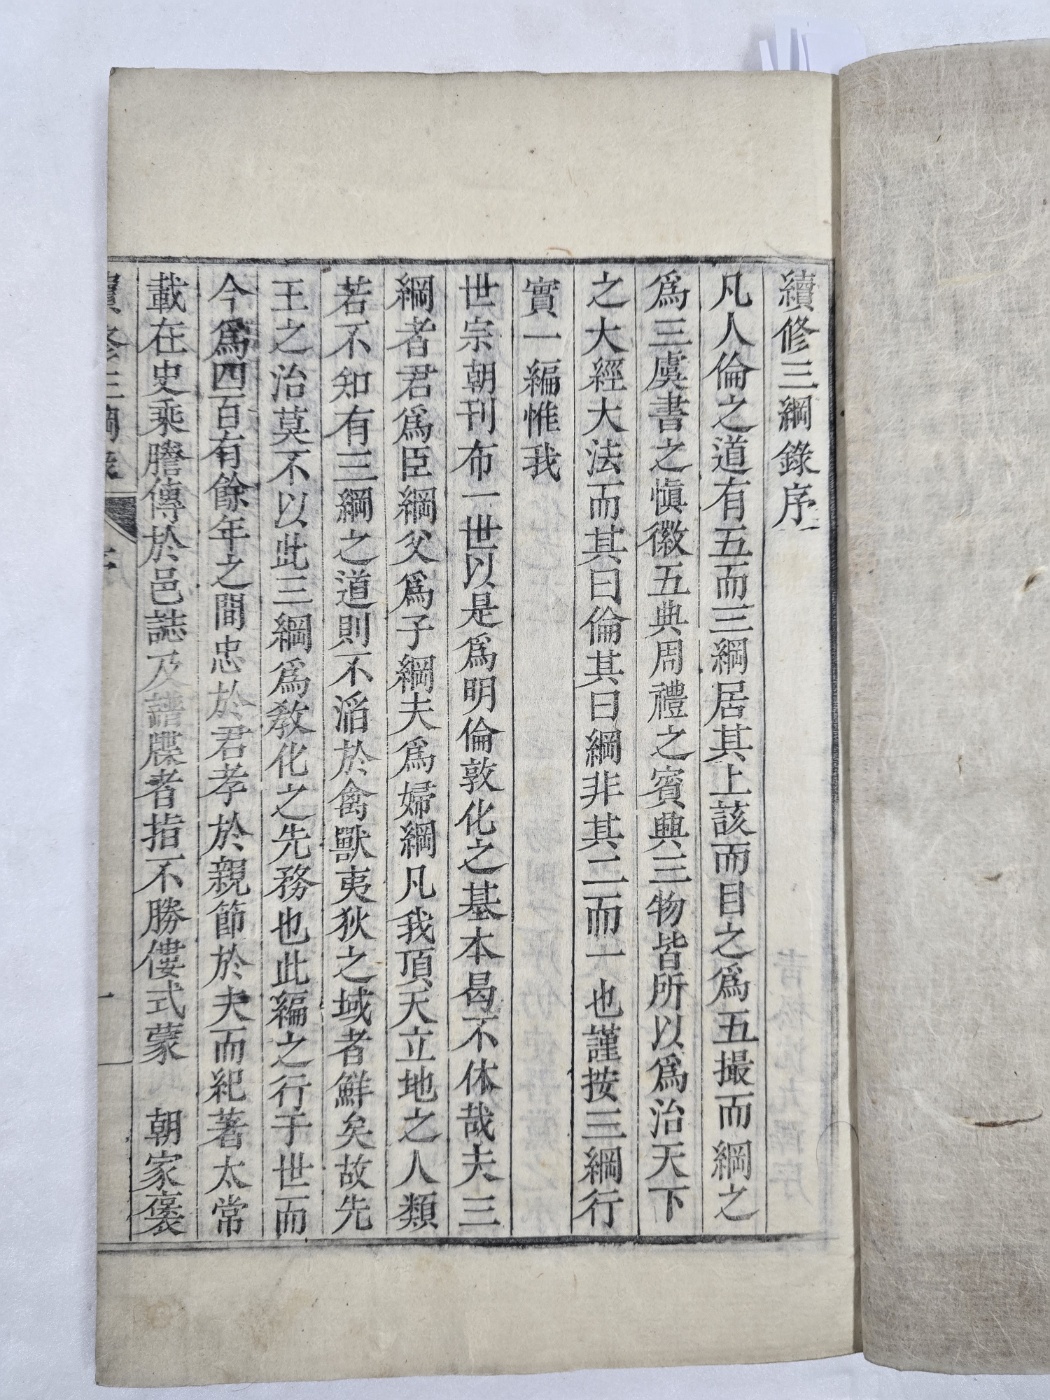 續修三綱錄序
凡人倫之道有五而三綱居其上該而目之爲五撮而綱之
爲三虞書之愼徽五典周禮之賓興三物皆所以爲治天下
之大經大法而其曰倫其曰綱非其二而一也謹按三綱行
實一編惟我
世宗朝刊布一世以是爲明倫敦化之基本曷不休哉夫三
綱者君爲臣綱父爲子綱夫爲婦綱凡我頂天立地之人類
若不知有三綱之道則不滔於禽獸夷狄之域者鮮矣故先
王之治莫不以此三綱爲敎化之先務也此編之行于世而
今爲四百有餘年之間忠於君孝於親節於夫而紀著太常
載在史乘謄傳於邑誌及譜牒者指不勝僂式蒙 朝家褒
修三綱錄 序 一